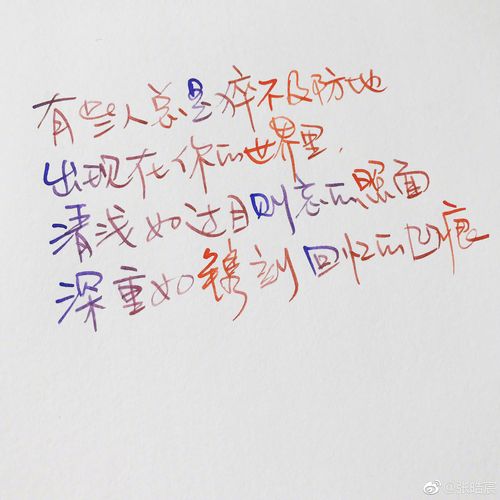 有些人总是猝不及防地
出现在你的世界里.
清浅如过目则忘的照面
深重如镌刻回忆的凹痕
@张皓宸